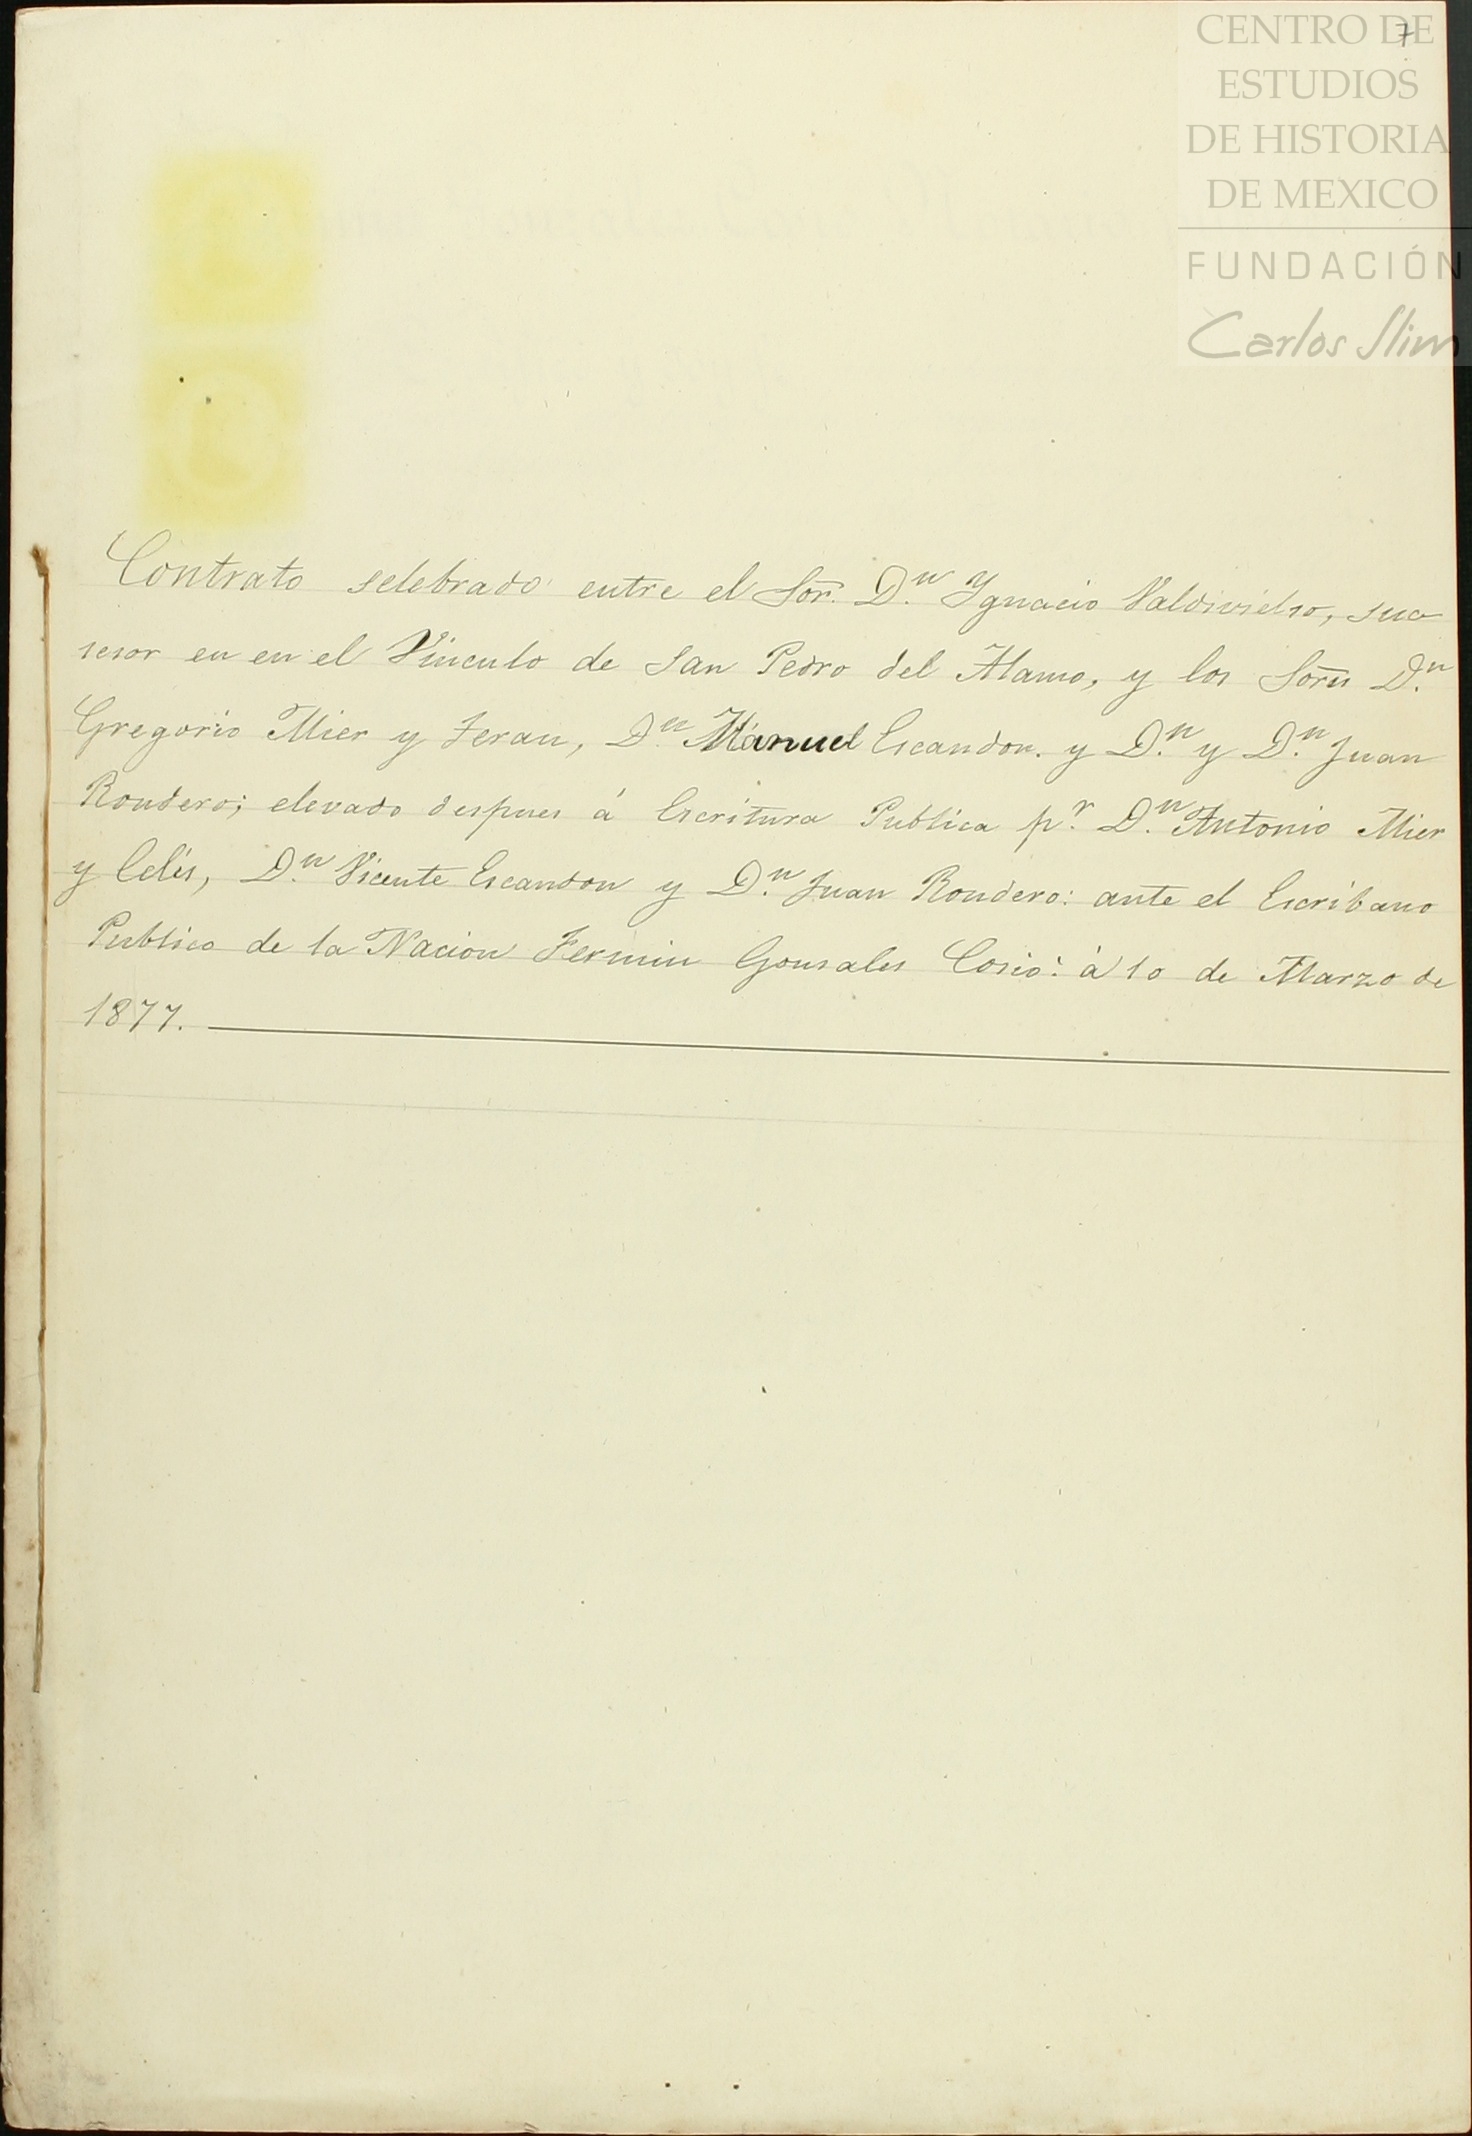 7
CENTRO DE
ESTUDIOS
DE HISTORIA
DE MEXICO
FUNDACIÓN
Carlos Slim
Contrato selebrado entre el Sor. D.n Ygnacio Valdivielso, suc
sesor en en el Vinculo de San Pedro del Alamo, y los Sores D.n
Gregorio Mier y Teran, D.n Manuel Escandon. y D.n y D.n Juan
Rondero; elevado despues á Escritura Publica p.r D.n Antonio Mier
y Celis, D.n Vicente Escandon y D.n Juan Rondero: ante el Escribano
Publico de la Nacion Fermin Gonsales Cosio: á 10 de Marzo de
1877.